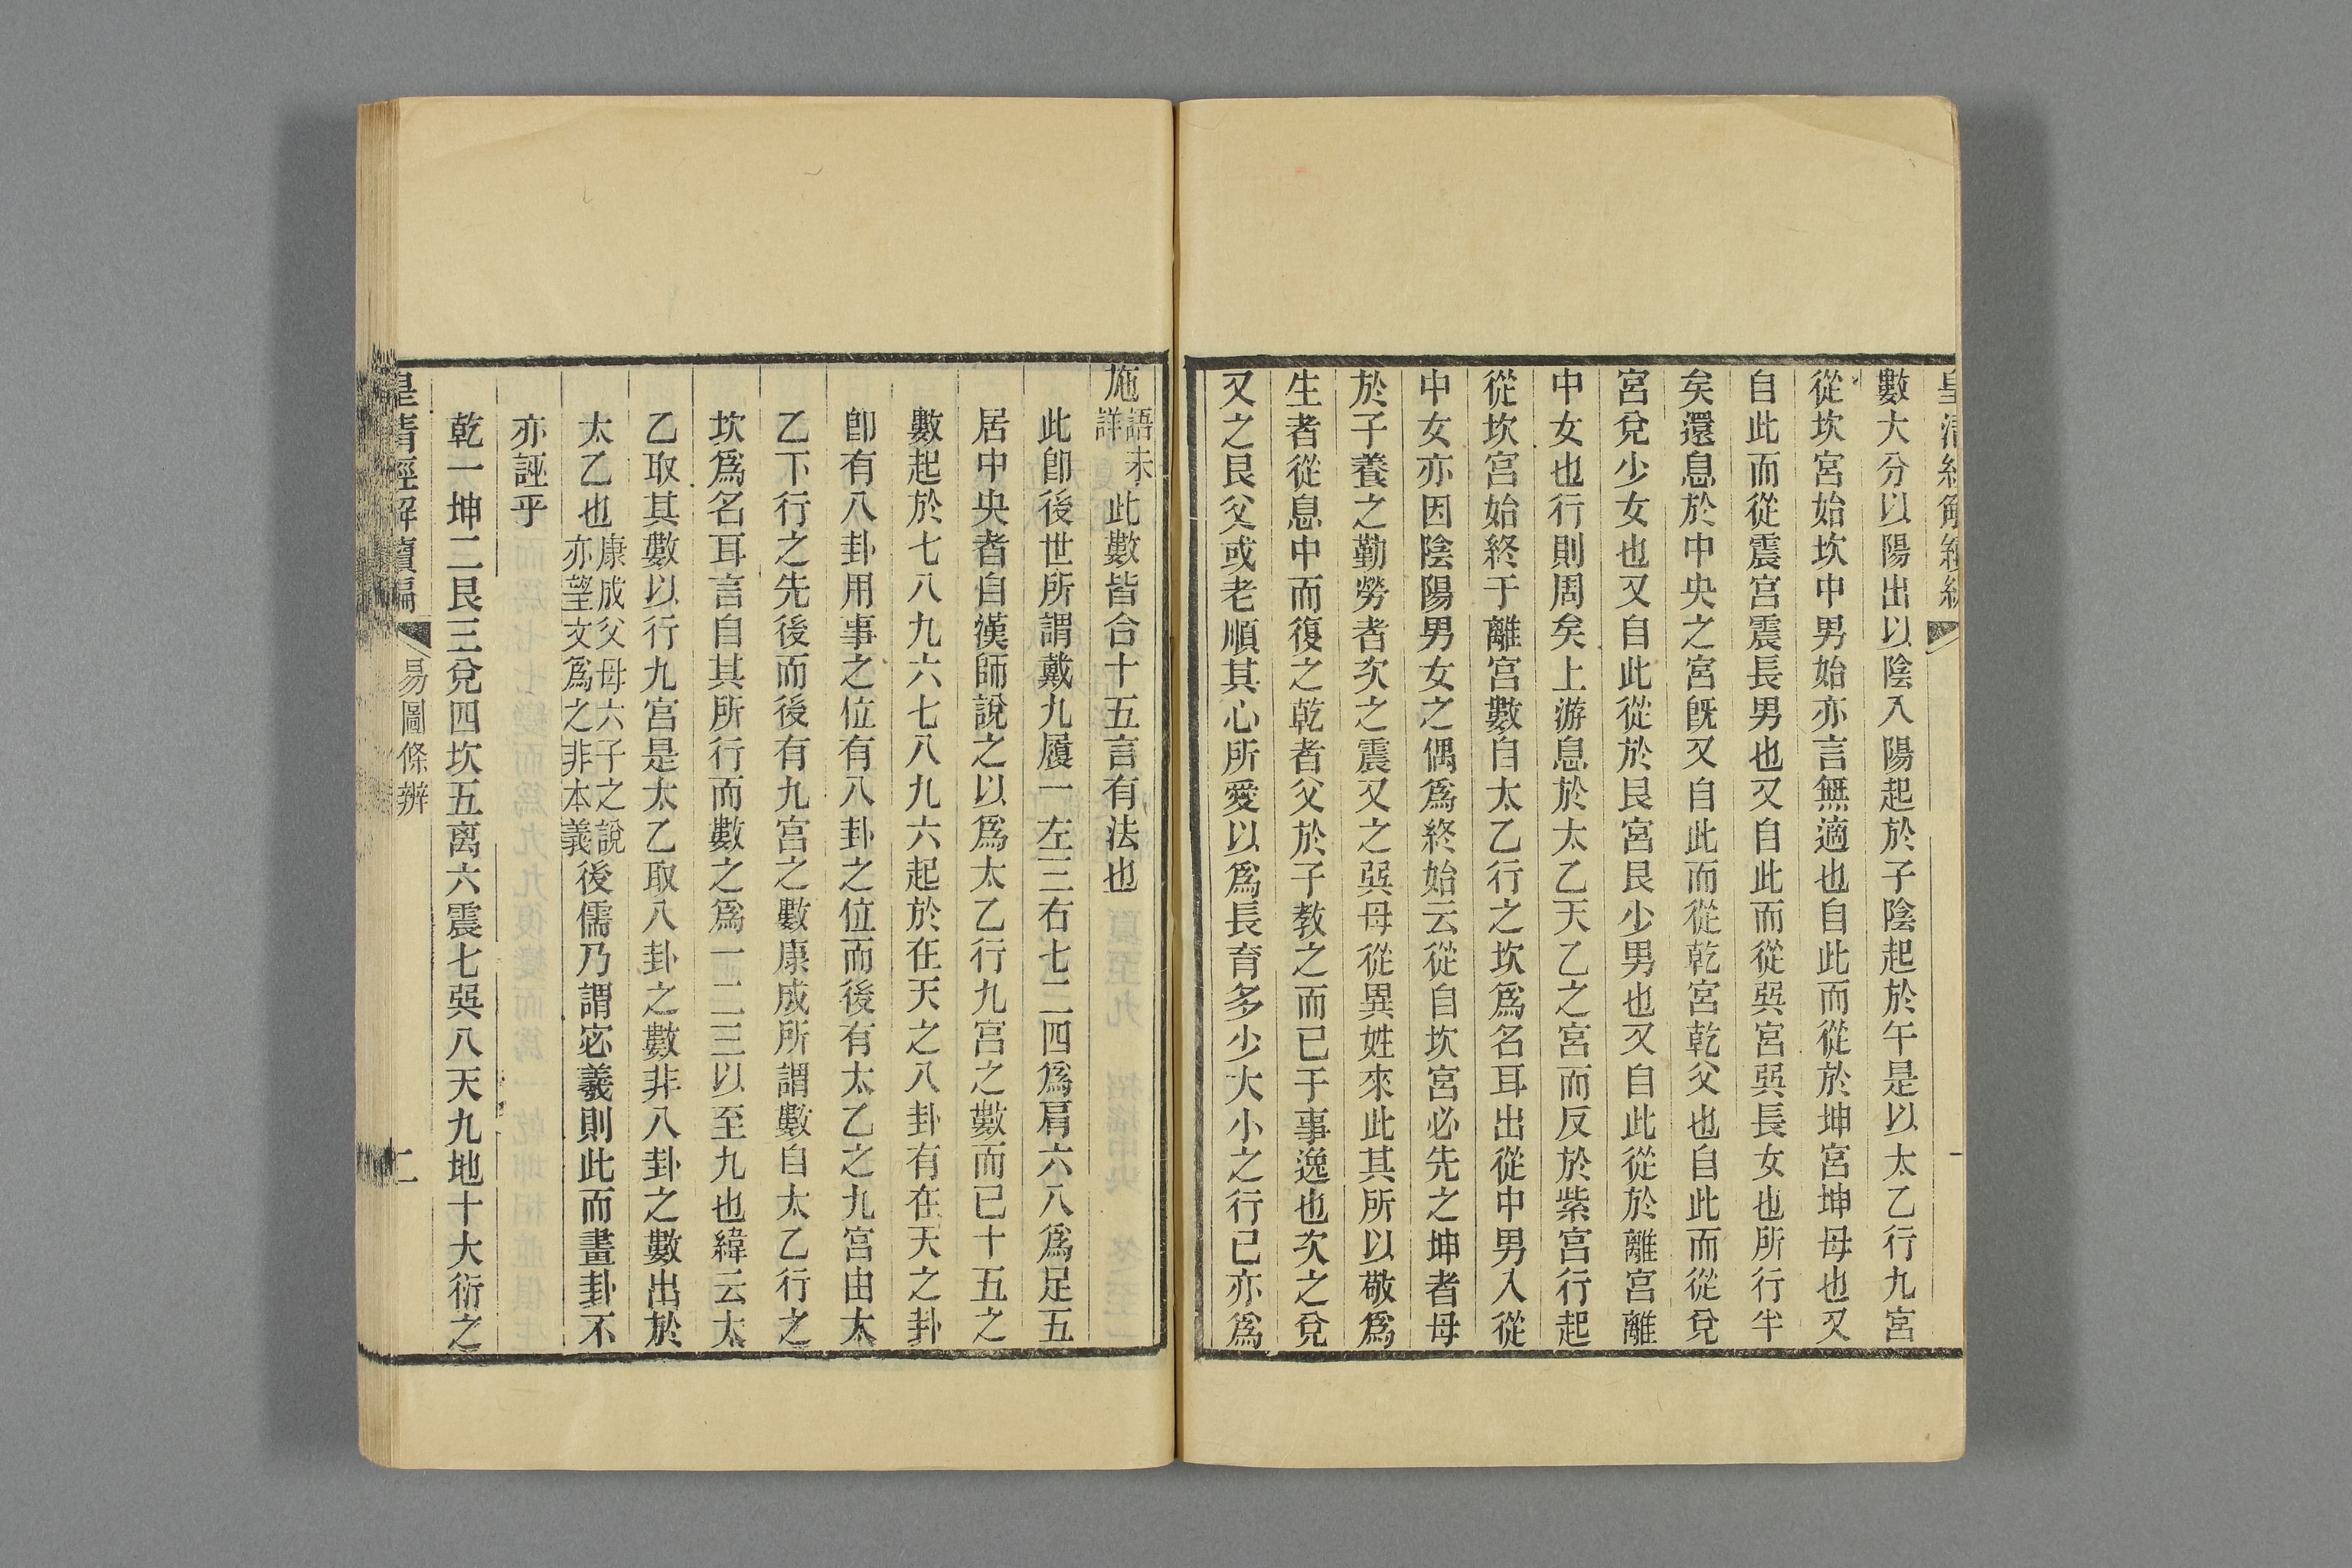 數大分以陽出以陰入陽起於子陰起於午是以太乙行九宮
從坎宮始坎中男始亦言無適也自此而從於坤宮坤母也又
自此而從震宮震長男也又自此而從巽宮巽長女也所行半
矣還息於中央之宮旣又自此而從乾宮乾父也自此而從兌
宮兌少女也又自此從於艮宮艮少男也又自此從於離宮離
中女也行則周矣上游息於太乙天乙之宮而反於紫宮行起
從坎宮始終于離宮數自太乙行之坎爲名耳出從中男入從
中女亦因陰陽男女之偶爲終始云從自坎宮必先之坤者母
於子養之勤勞者次之震又之巽母從異姓來此其所以敬爲
生者從息中而復之乾者父於子教之而已于事逸也次之兌
又之艮父或老順其心所愛以爲長育多少大小之行已亦爲
施語未詳此數皆合十五言有法也
此卽後世所謂戴九履一左三右七二四爲肩六八爲足五
居中央者自漢師說之以爲太乙行九宮之數而已十五之
數起於七八九六七八九六起於在天之八卦有在天之卦
卽有八卦用事之位有八卦之位而後有太乙之九宮由太
乙下行之先後而後有九宮之數康成所謂數自太乙行之
坎爲名耳言自其所行而數之爲一二三以至九也緯云太
乙取其數以行九宮是太乙取八卦之數非八卦之數出於
太乙也康成父母六子之說亦望文爲之非本義後儒乃謂宓羲則此而畫卦不
亦誣乎
乾一坤二艮三兌四坎五离六震七巽八天九地十大衍之
皇清經解續編 易圖條辨 二